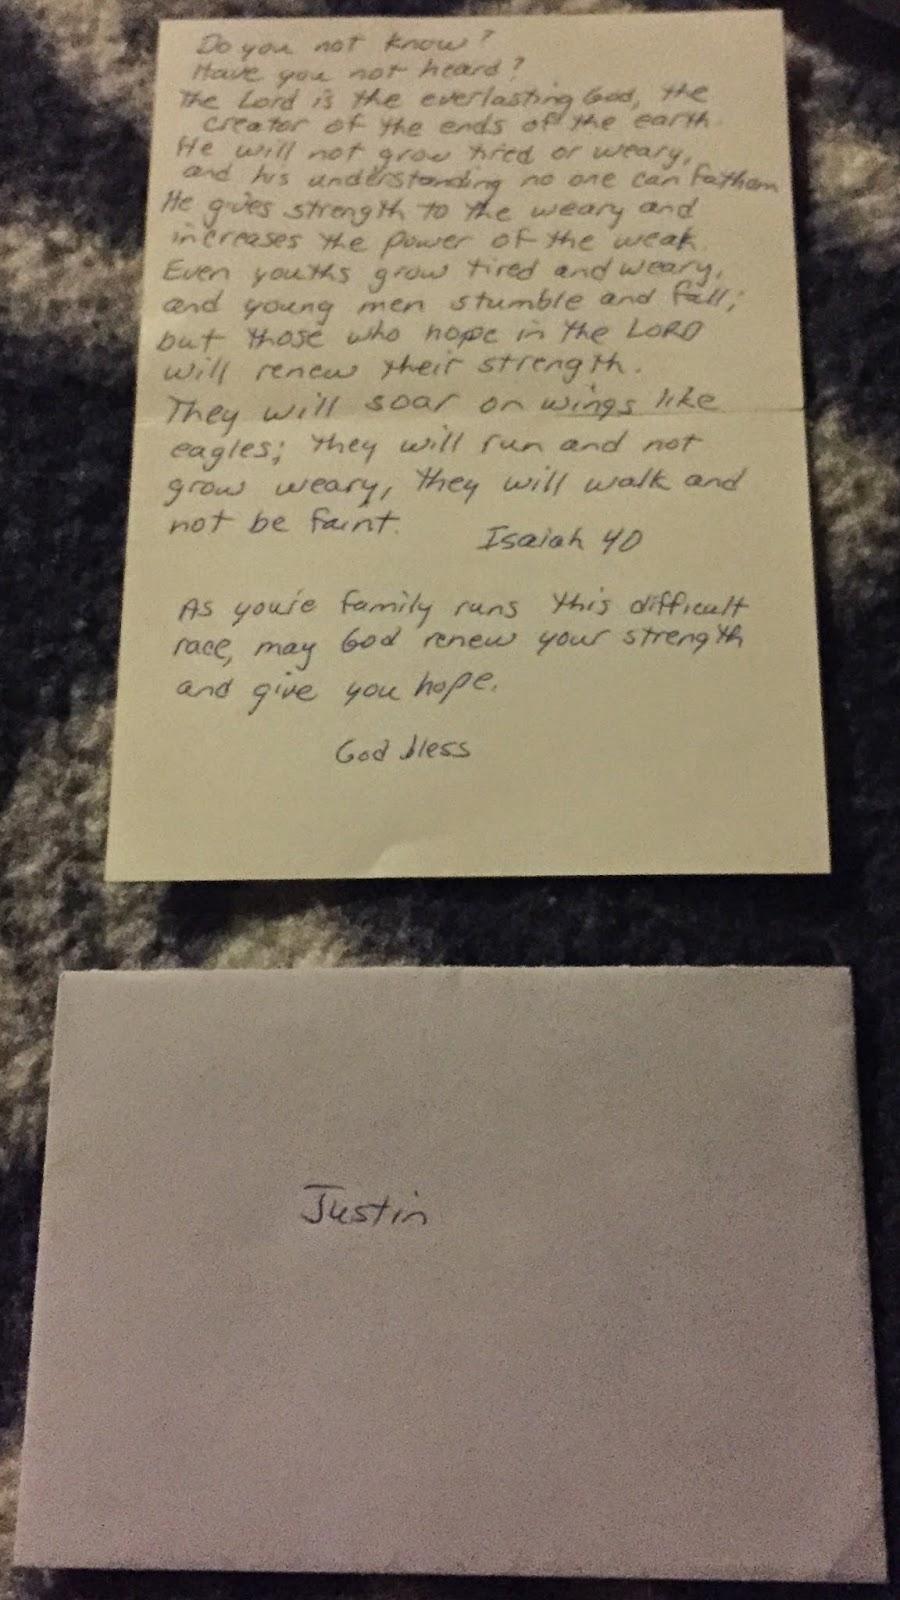 Do you not know?
Have you not heard?
The Lord is the everlasting God, the
creator of the ends of the earth.
He will not grow tired or weary,
and his understanding no one can fathom
He gives strength to the weary and
increases the power of the weak.
Even youths grow tired and weary,
and young men stumble and fall;
but those who hope in the LORD
will renew their strength.
They will soar on wings like
eagles; they will run and not
grow weary, they will walk and
not be faint.
Isaiah 40
As you're family runs this difficult
race, may God renew your strength
and give you hope.
God bless
Justin